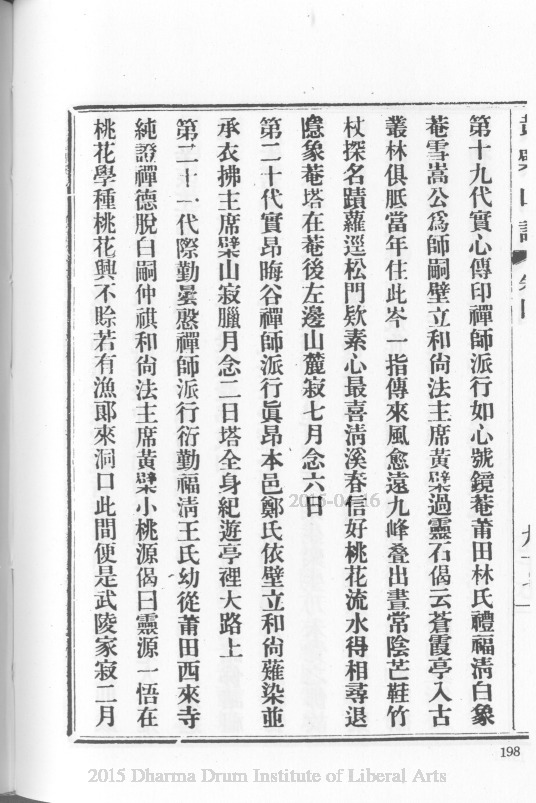 第十九代實心傳印禪師派行如心號鏡菴莆田林氏禮福淸白象
菴雪嵩公爲師嗣壁立和尙法主席黃檗過靈石偈云蒼霞亭入古
叢林俱胝當年住此岑一指傳來風愈遠九峰叠出晝常陰芒鞋竹
杖探名蹟蘿逕松門欵素心最喜淸溪春信好桃花流水得相尋退
隱象菴塔在菴後左邊山麓寂七月念六日
第二十代實昂晦谷禪師派行眞昂本邑鄭氏依壁立和尙薙染並
承衣拂主席檗山寂臘月念二日塔全身紀遊亭裡大路上
第二十一代際勤曇憨禪師派行衍勤福淸王氏幼從莆田西來寺
純證禪德脫白嗣仲祺和尙法主席黃檗小桃源偈曰靈源一悟在
桃花學種桃花興不賒若有漁郞來洞口此間便是武陵家寂二月
198
2015 Dharma Drum Institute of Liberal Arts